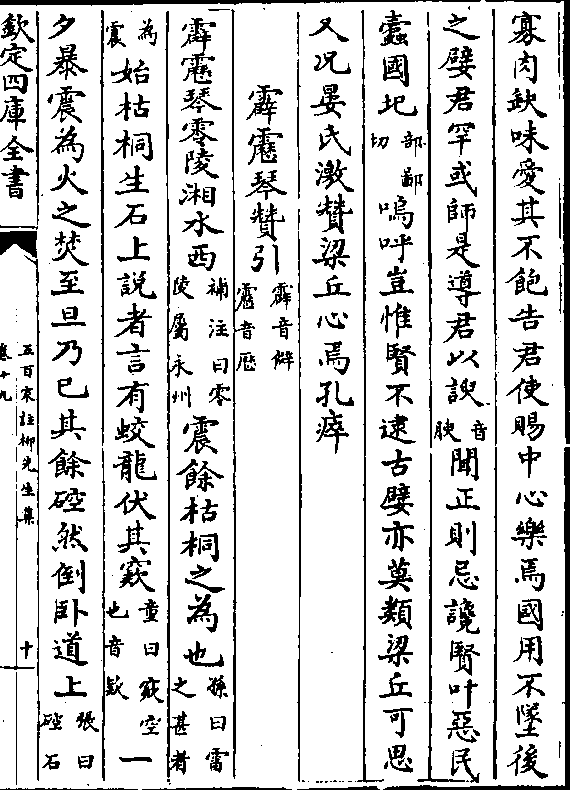 寡肉缺味愛其不飽告君使賜中心樂焉國用不墜後
之嬖君罕或師是導君以諛音腴聞正則忌讒賢叶惡民
蠹國圮部鄙切嗚呼豈惟賢不逮古嬖亦莫類梁丘可思
又况晏氏激贊梁丘心焉孔瘁
霹靂琴贊引霹音僻靂音歷
霹靂琴零陵湘水西補注曰零陵屬永州震餘枯桐之為也孫曰雷之甚者
為震始枯桐生石上說者言有蛟龍伏其窾童曰窾空也音欵一
夕暴震為火之焚至旦乃已其餘硿然倒卧道上張曰硿石
欽定四庫全書
五百家註柳先生集
卷十九
十